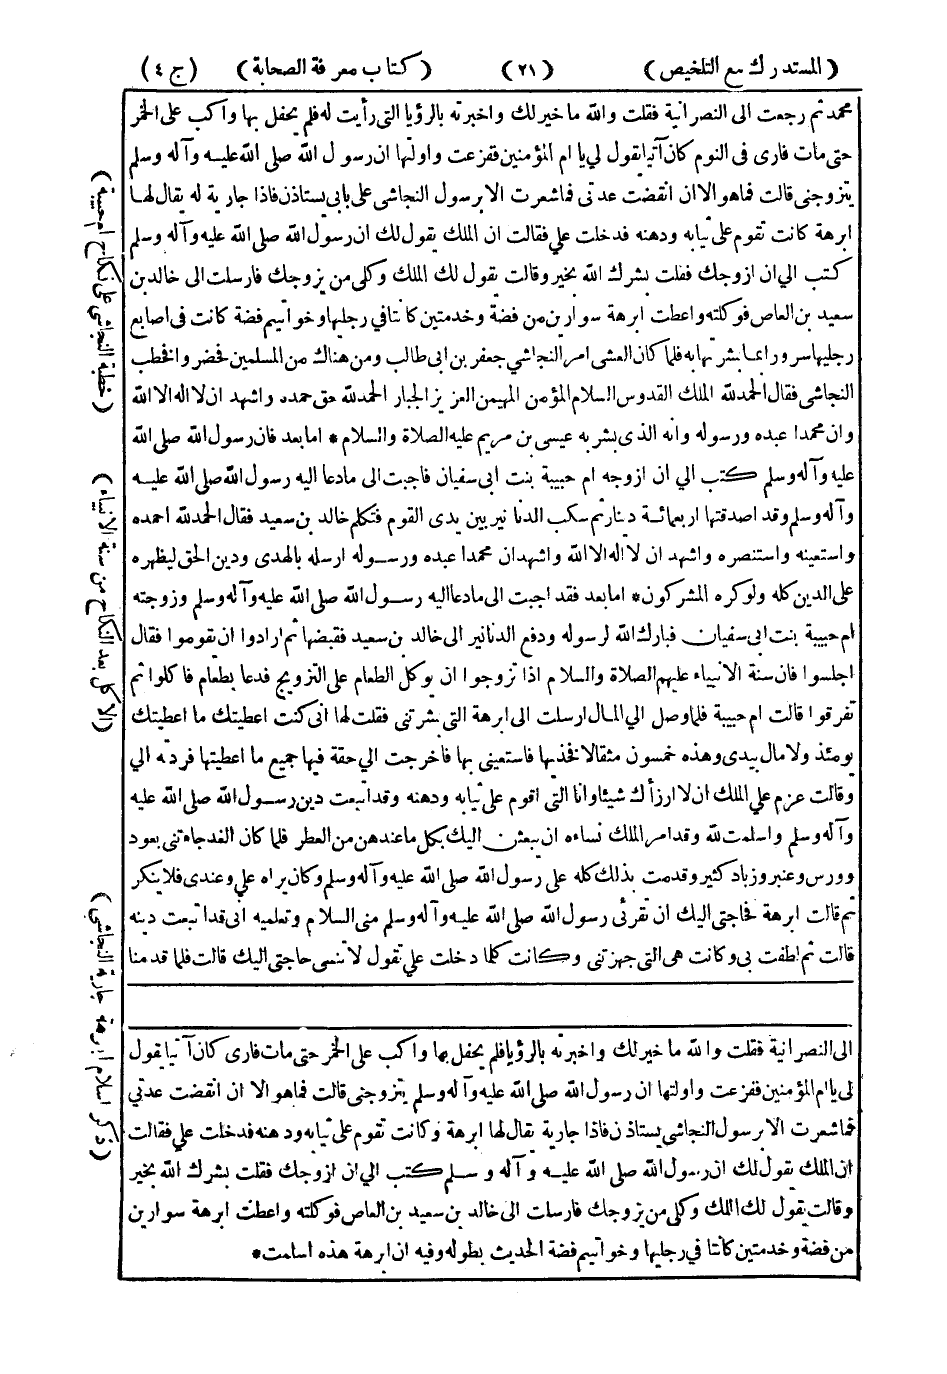 (المستدرك مع التلخيص) (٢١) (كتاب معرفة الصحابة) (ج ٤)
محمد ثم رجعت الى النصرانية فقلت والله ما خير لك واخبرته بالرؤيا التى رأيت له فلم يحفل بها واكب على الخمر
حتى مات فارى فى النوم كان آتيا يقول لى يا ام المؤمنين ففزعت واولتها ان رسول الله صلى الله عليه وآله وسلم
يتزوجنى قالت فما هو الا ان انقضت عدتى فما شعرت الا برسول النجاشى على بابى يستاذن فاذا جارية له يقال لها
ابرهة كانت تقوم على ثيابه ودهنه فدخلت علي فقالت ان الملك يقول لك ان رسول الله صلى الله عليه وآله وسلم
كتب الي ان ازوجك فقلت بشرك الله بخير وقالت يقول لك الملك وكلى من يزوجك فارسلت الى خالد بن
سعيد بن العاص فوكلته واعطت ابرهة سوارين من فضة وخدمتين كانتا في رجليها وخواتيم فضة كانت فى اصابع
رجليها سرورا بما بشرتها به فلما كان العشى امر النجاشي جعفر بن ابى طالب ومن هناك من المسلمين فحضر وا فخطب
النجاشى فقال الحمدلله الملك القدوس السلام المؤمن المهيمن العزيز الجبار الحمدلله حق حمده واشهد ان لا اله الا الله
وان محمدا عبده ورسوله وانه الذى بشر به عيسى بن مريم عليه الصلاة والسلام * اما بعد فان رسول الله صلى الله
عليه وآله وسلم كتب الي ان ازوجه ام حبيبة بنت ابى سفيان فاجبت الى مادعا اليه رسول الله صلى الله عليه
وآله وسلم وقد اصدقتها اربعمائة دينار ثم سكب الدنانير بين يدى القوم فتكلم خالد بن سعيد فقال الحمدلله احمده
واستعينه واستنصره واشهد ان لا اله الا الله واشهد ان محمدا عبده ورسوله ارسله بالهدى ودين الحق ليظهره
على الدين كله ولوكره المشركون * اما بعد فقد اجبت الى مادعا اليه رسول الله صلى الله عليه وآله وسلم وزوجته
ام حبيبة بنت ابى سفيان فبارك الله لرسوله ودفع الدنانير الى خالد بن سعيد فقبضها ثم ارادوا ان يقوموا فقال
اجلسوا فان سنة الانبياء عليهم الصلاة والسلام اذا تزوجوا ان يوكل الطعام على التزويج فدعا بطعام فاكلوا ثم
تفرقوا قالت ام حبيبة فلما وصل الي المال ارسلت الى ابرهة التى بشرتنى فقلت لها انى كنت اعطيتك ما اعطيتك
يومئذ ولا مال بيدى وهذه خمسون مثقالا فخذيها فاستعينى بها فاخرجت الي حقة فيها جميع ما اعطيتها فردته الي
وقالت عزم علي الملك ان لا ارزأك شيئا وانا التى اقوم على ثيابه ودهنه وقد اتبعت دين رسول الله صلى الله عليه
وآله وسلم واسلمت لله وقد امر الملك نساءه ان يبعثن اليك بكل ما عندهن من العطر فلما كان الغد جاءتنى بعود
وورس وعنبر وزباد كثير وقدمت بذلك كله على رسول الله صلى الله عليه وآله وسلم وكان يراه علي وعندى فلا ينكر
ثم قالت ابرهة فحاجتى اليك ان تقرئى رسول الله صلى الله عليه وآله وسلم منى السلام وتعلميه انى قد اتبعت دينه
قالت ثم لطفت بى وكانت هى التى جهزتنى وكانت كلما دخلت علي تقول لا تنسى حاجتى اليك قالت فلما قدمنا
(خطبة النجاشى على نكاح ام حبيبة)
(الاكل بعد النكاح من سنة الانبياء)
(ذكر اسلام ابرهة جارية النجاشى)
الى النصرانية فقلت والله ما خير لك واخبرته بالرؤيا فلم يحفل بها واكب على الخمر حتى مات فارى كان آتيا يقول
لى يا ام المؤمنين ففزعت واولتها ان رسول الله صلى الله عليه وآله وسلم يتزوجنى قالت فما هو الا ان انقضت عدتي
فما شعرت الا برسول النجاشى يستاذن فاذا جارية يقال لها ابرهة وكانت تقوم على ثيابه ودهنه فدخلت علي فقالت
ان الملك يقول لك ان رسول الله صلى الله عليه وآله وسلم كتب الي ان ازوجك فقلت بشرك الله بخير
وقالت يقول لك الملك وكلى من يزوجك فارسلت الى خالد بن سعيد بن العاص فوكلته واعطت ابرهة سوارين
من فضة وخدمتين كانتا في رجليها وخواتيم فضة الحديث بطوله وفيه ان ابرهة هذه اسلمت *